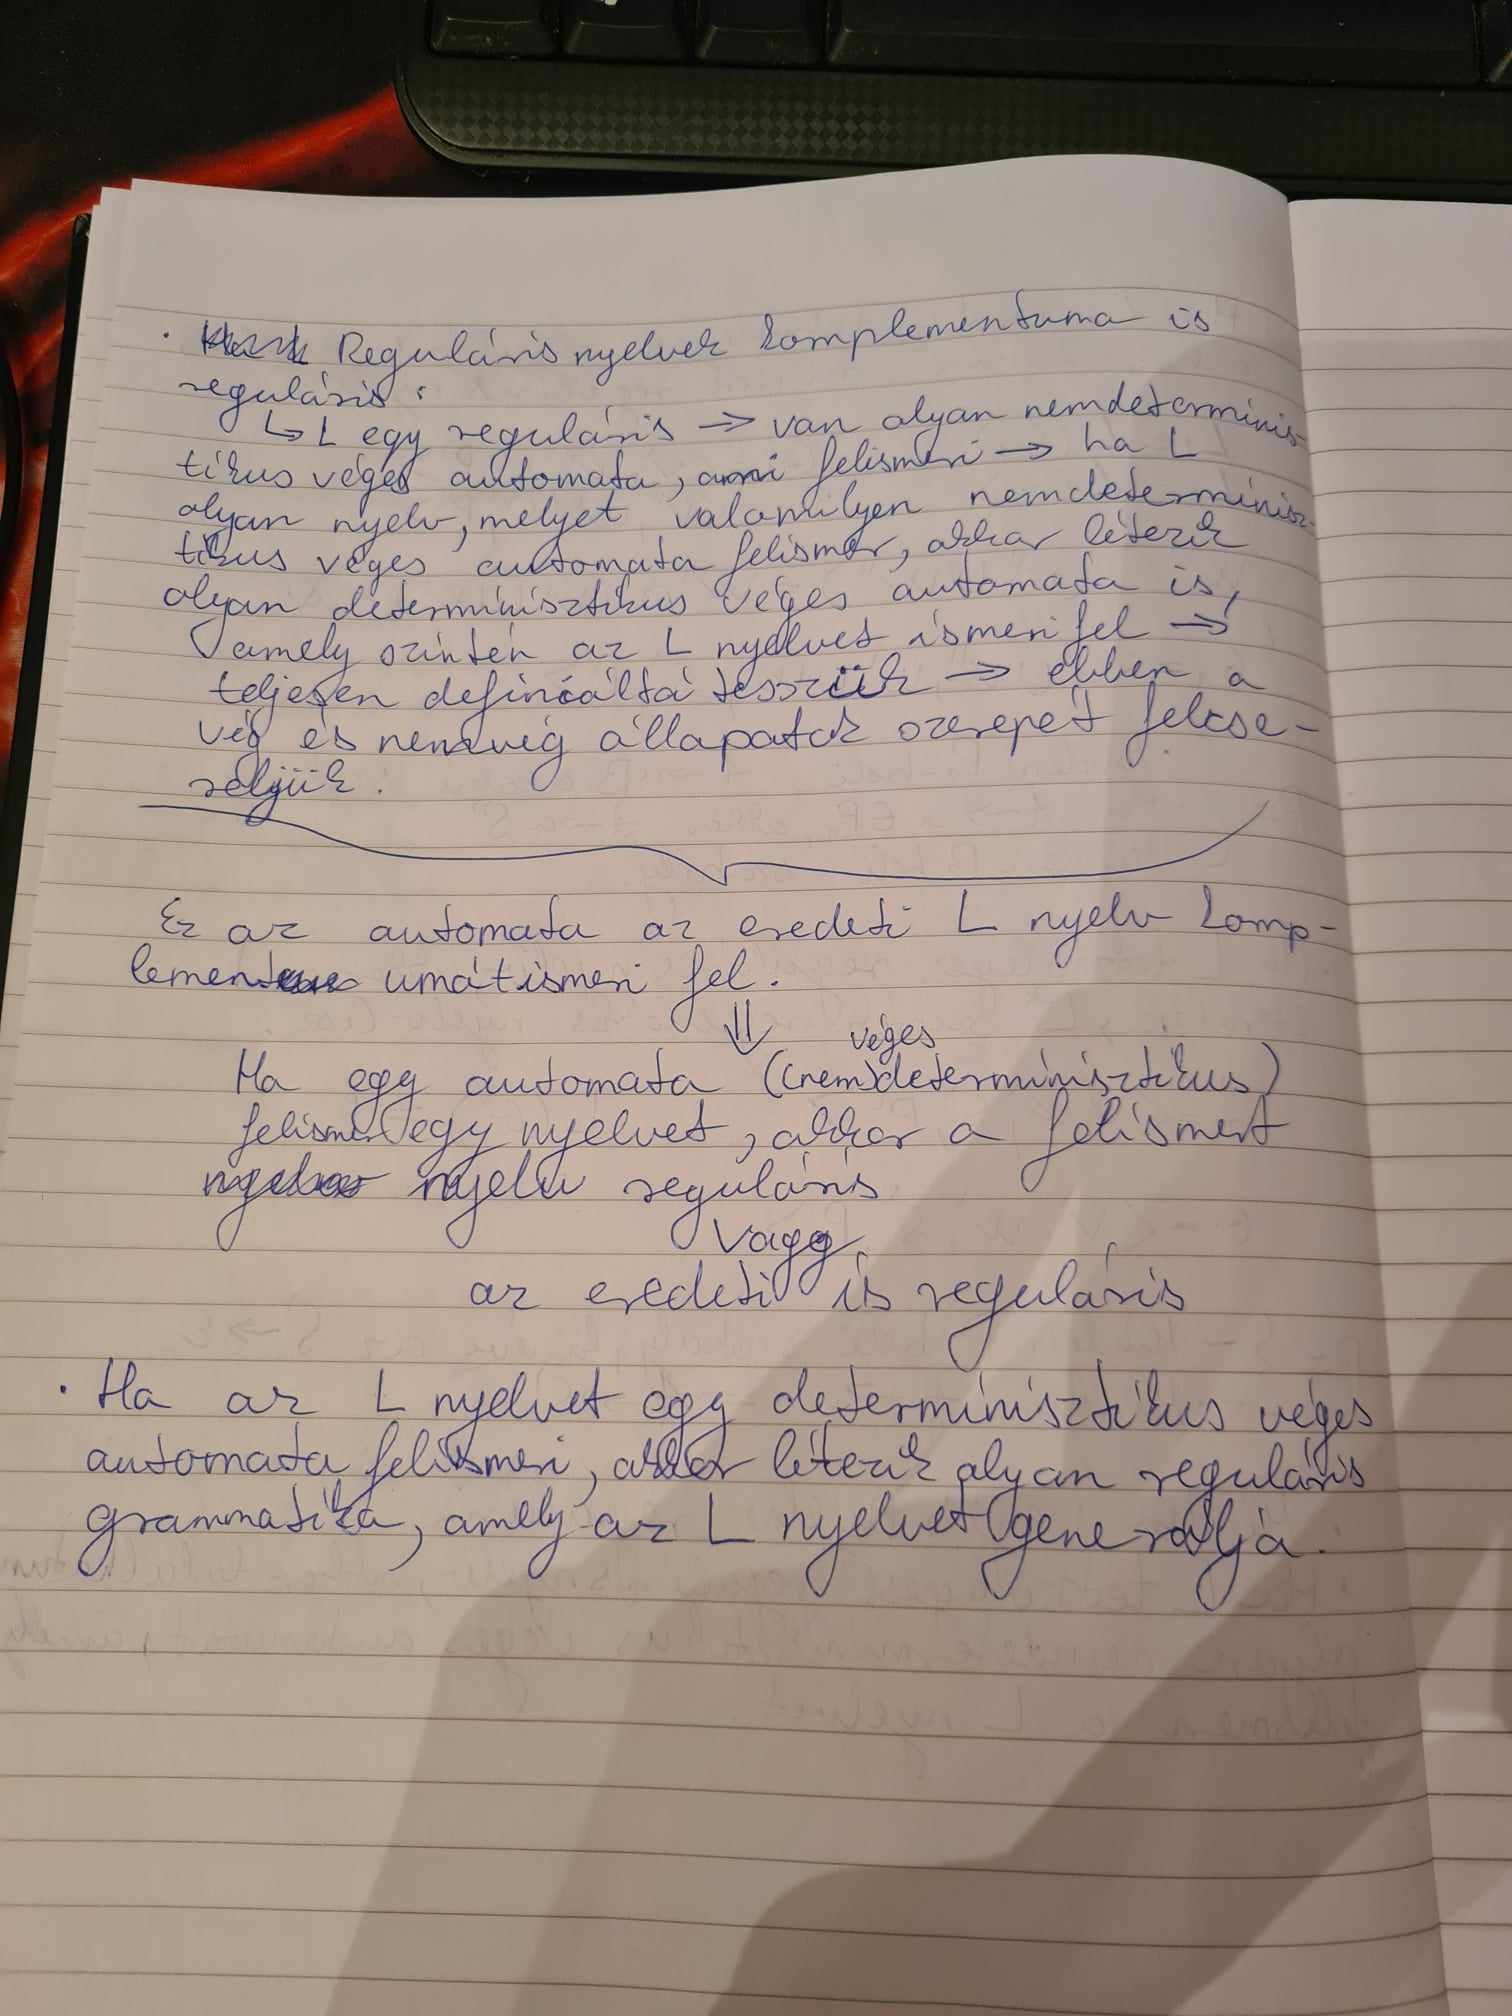 · Reguláris nyelvek komplementuma is
reguláris:
↳ L egy reguláris → van olyan nemdeterminis-
tikus véges automata, ami felismeri → ha L
olyan nyelv, melyet valamilyen nemdeterminisz-
tikus véges automata felismer, akkor létezik
olyan determinisztikus véges automata is,
amely szintén az L nyelvet ismeri fel →
teljesen definiálttá tesszük → ebben a
vég és nemvég állapotok szerepét felcse-
réljük.
Ez az automata az eredeti L nyelv komp-
lement umát ismeri fel.
⇓
véges
Ha egy automata ((nem)determinisztikus)
felismer egy nyelvet, akkor a felismert
nyelv reguláris
Vagy
az eredeti is reguláris
· Ha az L nyelvet egy determinisztikus véges
automata felismeri, akkor létezik olyan reguláris
grammatika, amely az L nyelvet generálja.